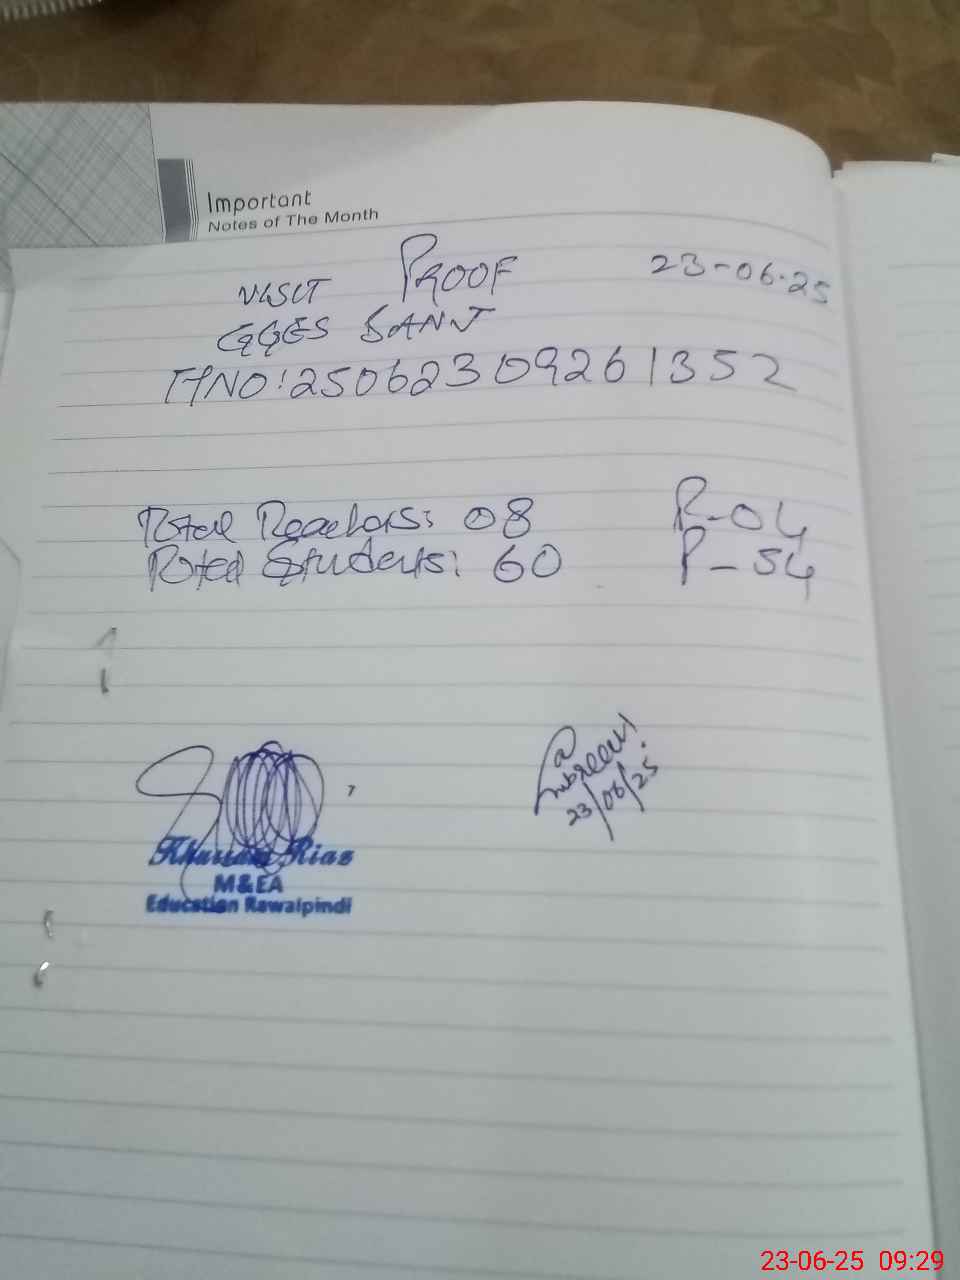 Important
Notes of The Month
VISIT PROOF 23-06-25
GGES BANT
THNO: 250623 09261352
Total Teachers: 08 P-04
Total Students: 60 P-54
Ambreen
23/06/25
Khurram Riaz
M&EA
Education Rawalpindi
23-06-25 09:29